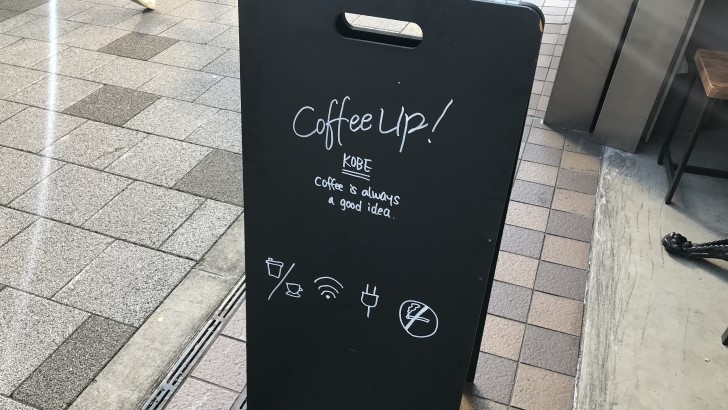 Coffee Up!
KOBE
Coffee is always
a good idea.